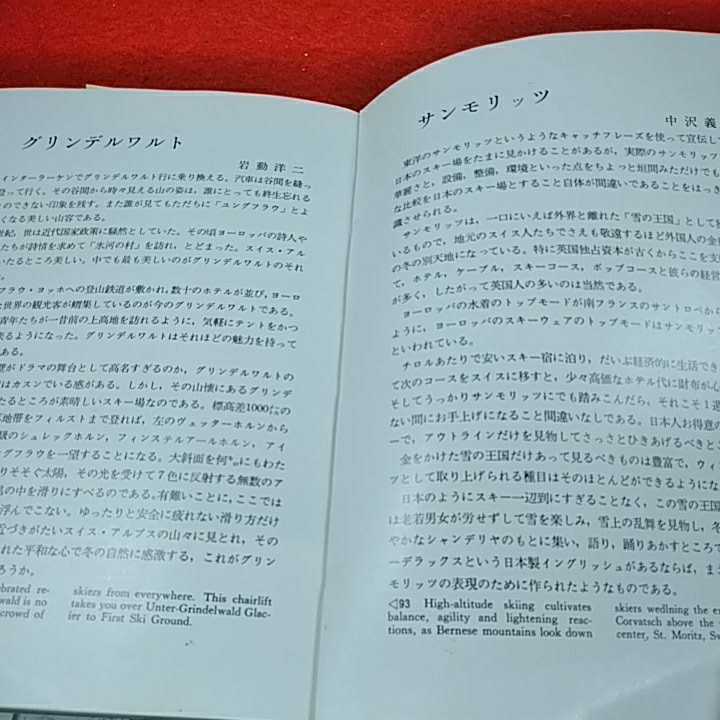 グリンデルワルト
岩動洋二
インターラーケンでグリンデルワルト行に乗り換える。汽車は谷間を縫っ
登って行く。その谷間から時々見える山の姿は、誰にとっても終生忘れる
のできない印象を残す。また誰が見てもただちに「ユングフラウ」とよ
くなる美しい山容である。
世紀、世は近代国家政策に騒然としていた。その頃ヨーロッパの詩人や
たちが詩情を求めて「氷河の村」を訪れ、とどまった。スイス・アル
いたるところ美しい。中でも最も美しいのがグリンデルワルトのそれ
フラウ・ヨッホへの登山鉄道が敷かれ、数十のホテルが並び、ヨーロ
世界の観光客が蝟集しているのが今のグリンデルワルトである。
青年たちが一昔前の上高地を訪れるように、気軽にテントをかつ
るようになった。グリンデルワルトはそれほどの魅力を持って
がドラマの舞台として高名すぎるのか、グリンデルワルトの
はカスンでいる感がある。しかし、その山懐にあるグリンデ
たるところが素晴しいスキー場なのである。標高差1000メートルの
地帯をフィルストまで登れば、左のヴェッターホルンから
級のシュレックホルン、フィンステルアールホルン、アイ
グフラウを一望することになる。大斜面を何キロにもわた
りそそぐ太陽、その光を受けて7色に反射する無数のア
の中を滑りにすべるのである。有難いことに、ここでは
浮んでこない。ゆったりと安全に疲れない滑り方だけ
近づきがたいスイス・アルプスの山々に見とれ、その
れた平和な心で冬の自然に感激する、これがグリン
ろうか。
ebrated re-
wald is no
crowd of
skiers from everywhere. This chairlift
takes you over Unter-Grindelwald Glac-
ier to First Ski Ground.
サンモリッツ
中沢義
東洋のサンモリッツというようなキャッチフレーズを使って宣伝して
日本のスキー場をたまに見かけることがあるが、実際のサンモリッツ
華麗さと、設備、整備、環境といった点をちょっと垣間みただけでも
な比較を日本のスキー場とすること自体が間違いであることをはっき
識させられる。
サンモリッツは、一口にいえば外界と離れた「雪の王国」として
いるもので、地元のスイス人たちでさえも敬遠するほど外国人の金
の冬の別天地になっている。特に英国独占資本が古くからここを支
て、ホテル、ケーブル、スキーコース、ボッブコースと彼らの経営
が多く、したがって英国人の多いのは当然である。
ヨーロッパの水着のトップモードが南フランスのサントロペから
ように、ヨーロッパのスキーウェアのトップモードはサンモリッツ
といわれている。
チロルあたりで安いスキー宿に泊り、だいぶ経済的に生活でき
て次のコースをスイスに移すと、少々高価なホテル代に財布が心
そしてうっかりサンモリッツにでも踏みこんだら、それこそ1週
ない間にお手上げになること間違いなしである。日本人お得意の
ーで、アウトラインだけを見物してさっさとひきあげるべきとこ
金をかけた雪の王国だけあって見るべきものは豊富で、ウィ
ツとして取り上げられる種目はそのほとんどができるようにな
日本のようにスキー一辺到にすぎることなく、この雪の王国
は老若男女が労せずして雪を楽しみ、雪上の乱舞を見物し、冬
やかなシャンデリヤのもとに集い、語り、踊りあかすところで
ーデラックスという日本製イングリッシュがあるならば、ま
モリッツの表現のために作られたようなものである。
◁93 High-altitude skiing cultivates
balance, agility and lightening reac-
tions, as Bernese mountains look down
skiers wedlning the e
Corvatsch above the
center, St. Moritz, Sw